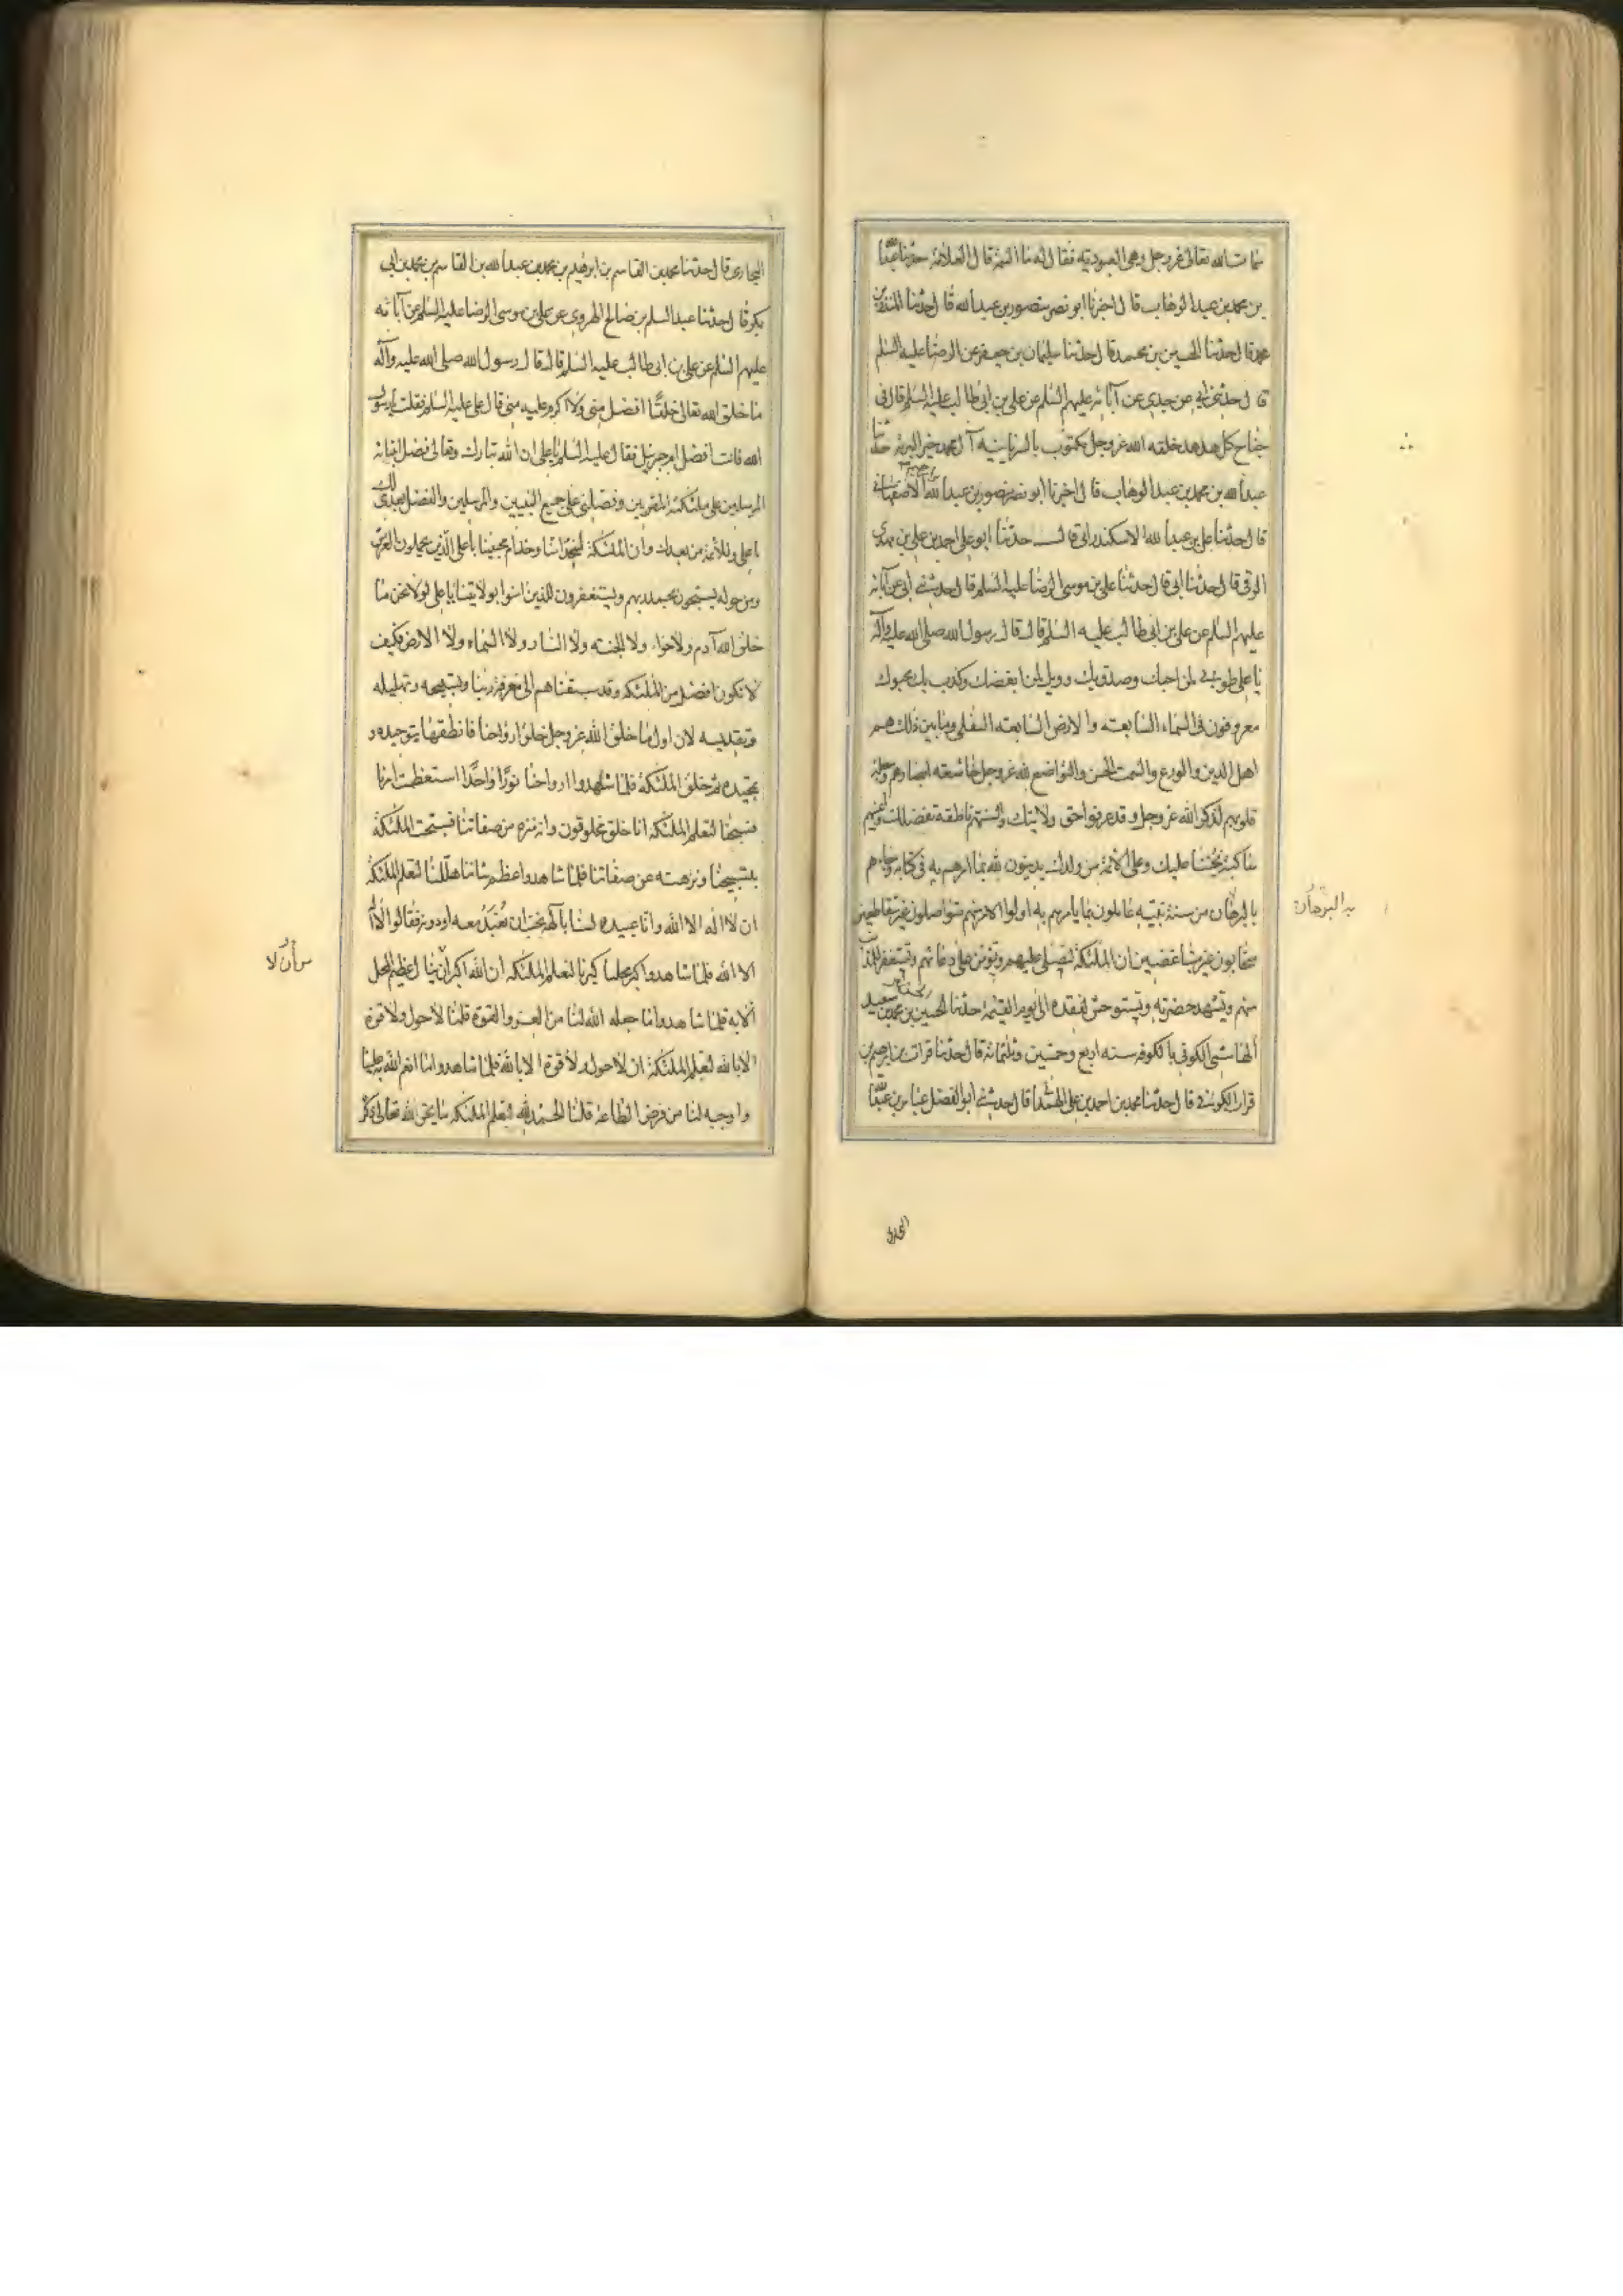 سمات الله تعالى عز وجل وهى العبودية فقال له ما السمة قال العلامة حدثنا عبد الله
بن محمد بن عبد الوهاب قال اخبرنا ابو نصر منصور بن عبد الله قال حدثنا المنذر بن
محمد قال حدثنا الحسين بن محمد قال حدثنا سليمان بن جعفر عن الرضا عليه السلم
قال حدثني ابي عن جدي عن آبائه عليهم السلم عن علي بن ابي طالب عليه السلم قال في
جناح كل هدهد خلقه الله عز وجل مكتوب بالسريانية آل محمد خير البرية حدثنا
عبد الله بن محمد بن عبد الوهاب قال اخبرنا ابو نصر منصور بن عبد الله الاصفهاني
قال حدثنا علي بن عبد الله الاسكندراني قال حدثنا ابو علي احمد بن علي بن مهدي
الرقي قال حدثنا ابي قال حدثنا علي بن موسى الرضا عليه السلم قال حدثني ابي عن آبائه
عليهم السلم عن علي بن ابي طالب عليه السلم قال قال رسول الله صلى الله عليه وآله
يا علي طوبى لمن احبك وصدق بك وويل لمن ابغضك وكذب بك محبوك
معروفون في السماء السابعة والارض السابعة السفلى وما بين ذلك هم
اهل الدين والورع والسمت الحسن والتواضع لله عز وجل خاشعة ابصارهم وجلة
قلوبهم لذكر الله عز وجل وقد عرفوا حق ولايتك والسنتهم ناطقة بفضلك واعينهم
ساكبة تحننا عليك وعلى الائمة من ولدك يدينون لله بما امرهم به في كتابه وجاءهم
با لبرهان من سنة نبيه عاملون بما يأمرهم به اولوا الامر منهم متواصلون غير متقاطعين
متحابون غير متباغضين ان الملئكة لتصلي عليهم وتؤمن على دعائهم وتستغفر للمذنب
منهم وتشهد حضرته وتستوحش لفقده الى يوم القيمة حدثنا الحسين بن محمد بن سعيد
الهاشمي الكوفي بالكوفه سنه اربع وخمسين وثلثمائة قال حدثنا فرات بن ابرهيم بن
فرات الكوفي قال حدثنا محمد بن احمد بن علي الهمداني قال حدثني ابو الفضل عباس بن عبد الله
به البرهان
البخاري
البخاري قال حدثنا محمد بن القاسم بن ابرهيم بن محمد بن عبد الله بن القاسم بن محمد بن ابي
بكر قال حدثنا عبد السلم بن صالح الهروي عن علي بن موسى الرضا عليه السلم عن آبائه
عليهم السلم عن علي بن ابي طالب عليه السلم قال قال رسول الله صلى الله عليه وآله
ما خلق الله تعالى خلقا افضل مني ولا اكرم عليه مني قال علي عليه السلم فقلت يا رسول
الله فانت افضل ام جبرئيل فقال عليه السلم يا علي ان الله تبارك وتعالى فضل انبيائه
المرسلين على ملئكته المقربين وفضلني على جميع النبيين والمرسلين والفضل بعدي لك
يا علي وللأئمة من بعدك وان الملئكة لخدامنا وخدام محبينا يا علي الذين يحملون العرش
ومن حوله يسبحون بحمد ربهم ويستغفرون للذين امنوا بولايتنا يا علي لولا نحن ما
خلق الله آدم ولا حواء ولا الجنة ولا النار ولا السماء ولا الارض فكيف
لا نكون افضل من الملئكه وقد سبقناهم الى معرفة ربنا وتسبيحه وتهليله
وتقديسه لان اول ما خلق الله عز وجل خلق ارواحنا فانطقها بتوحيده و
تمجيده ثم خلق الملئكة فلما شاهدوا ارواحنا نورا واحدا استعظمت امرنا
فسبحنا لتعلم الملئكة انا خلق مخلوقون وانه منزه من صفاتنا فسبحت الملئكة
بتسبيحنا ونزهته عن صفاتنا فلما شاهدوا عظم شاننا هللنا لتعلم الملئكة
ان لا اله الا الله وانا عبيده لسنا بآلهة يجب ان نعبد معه او دونه فقالوا لا اله
الا الله فلما شاهدوا كبر محلنا كبرنا لتعلم الملئكه ان الله اكبر ان ينال عظيم المحل
الا به فلما شاهدوا ما جعله الله لنا من العز والقوة قلنا لا حول ولا قوة
الا بالله لتعلم الملئكة ان لا حول ولا قوة الا بالله فلما شاهدوا ما انعم الله به علينا
واوجبه لنا من فرض الطاعة قلنا الحمد لله لتعلم الملئكه ما يحق لله تعالى ذكره
من أن لا